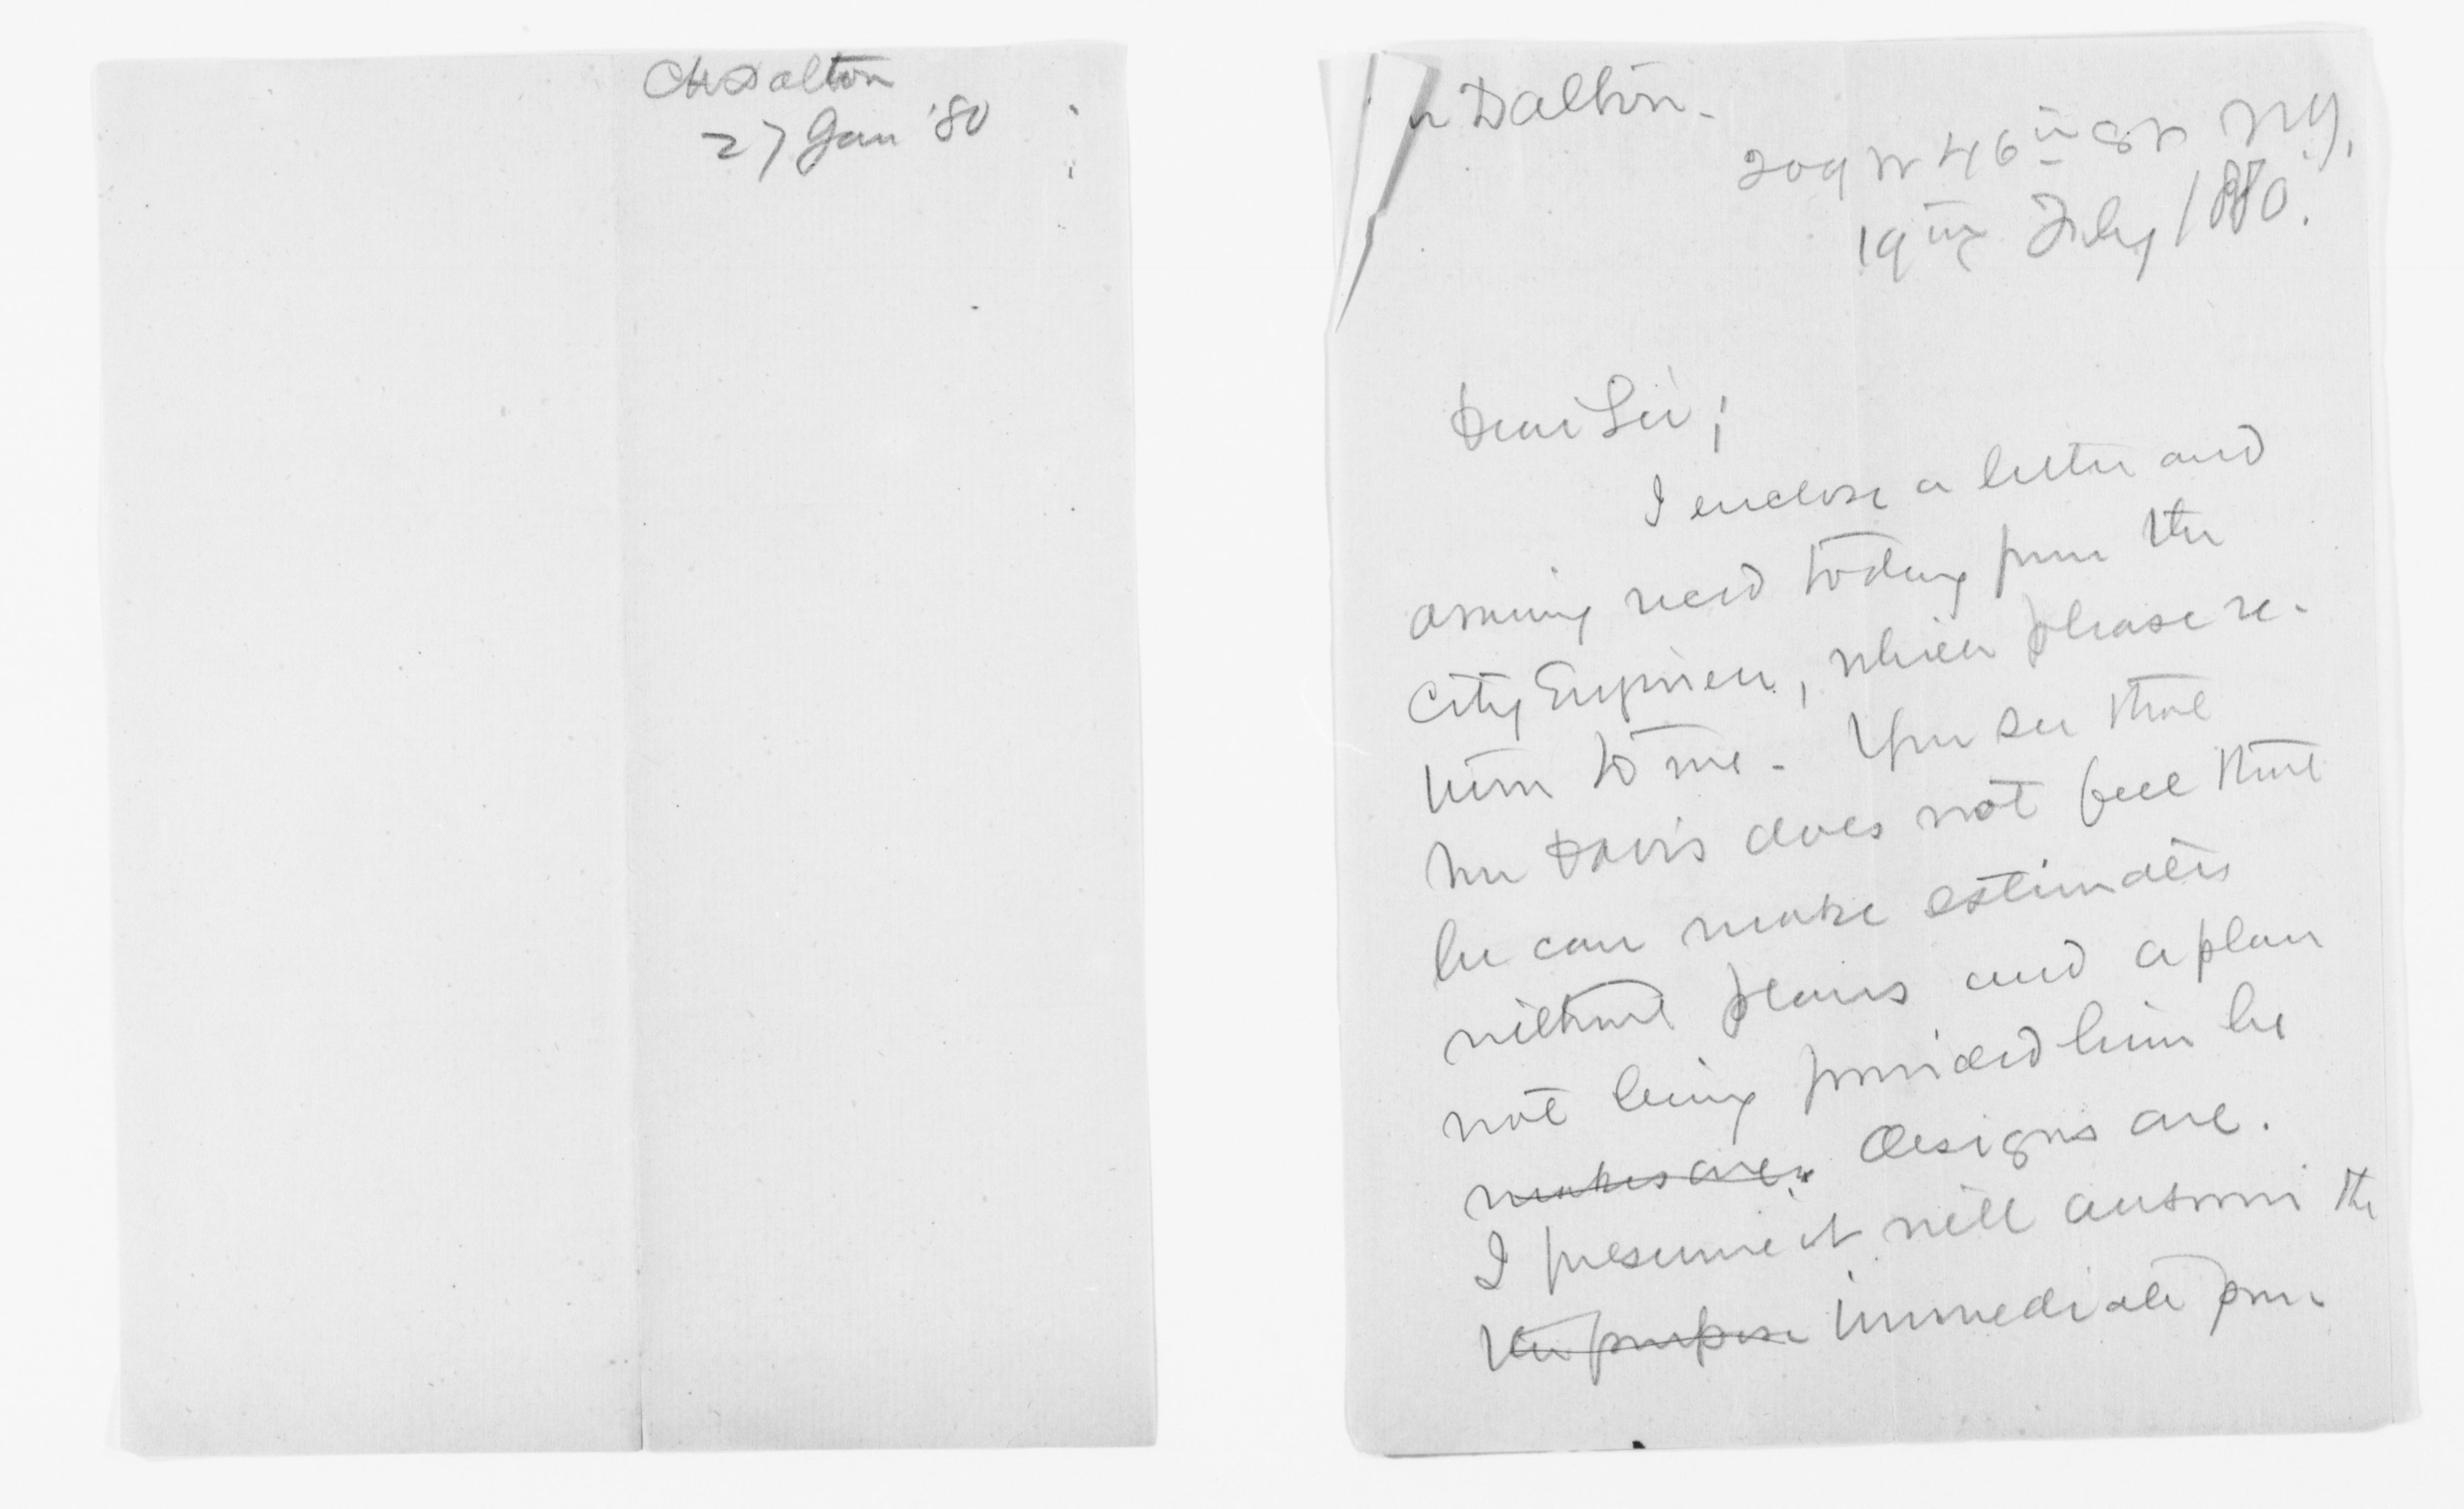 CH Dalton
27 Jan '80
r Dalton.
209 W 46th St N.Y.
19th July 1880.
Dear Sir;
I enclose a letter and
drawing recd today from the
City Engineer, which please re-
turn to me. You see that
Mr Davis does not feel that
he can make estimates
without plans and a plan
not being provided him he
makes one. designs one.
I presume it will answer the
the purpose immediate pur-